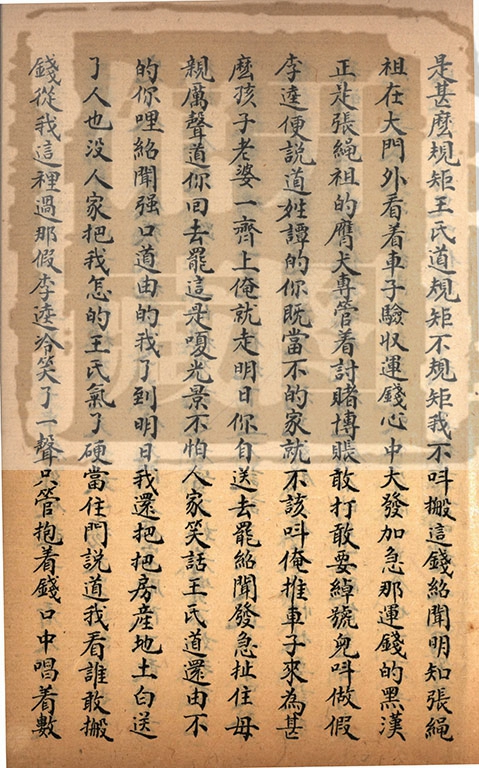 是甚麽規矩王氏道規矩不規矩我不呌搬這錢紹聞明知張繩
祖在大門外看着車子驗収運錢心中大發加急那運錢的黑漢
正是張繩祖的鷹犬專管着討賭博賬敢打敢要綽號兒呌做假
李逵便說道姓譚的你旣當不的家就不該呌俺推車子來為甚
麽孩子老婆一齊上俺就走明日你自送去罷紹聞發急扯住母
親厲聲道你回去罷這是嗄光景不怕人家笑話王氏道還由不
的你哩紹聞强口道由的我了到明日我還把把房産地土白送
了人也没人家把我怎的王氏氣了硬當住門説道我看誰敢搬
錢從我這裡過那假李逵冷笑了一聲只管抱着錢口中唱着數